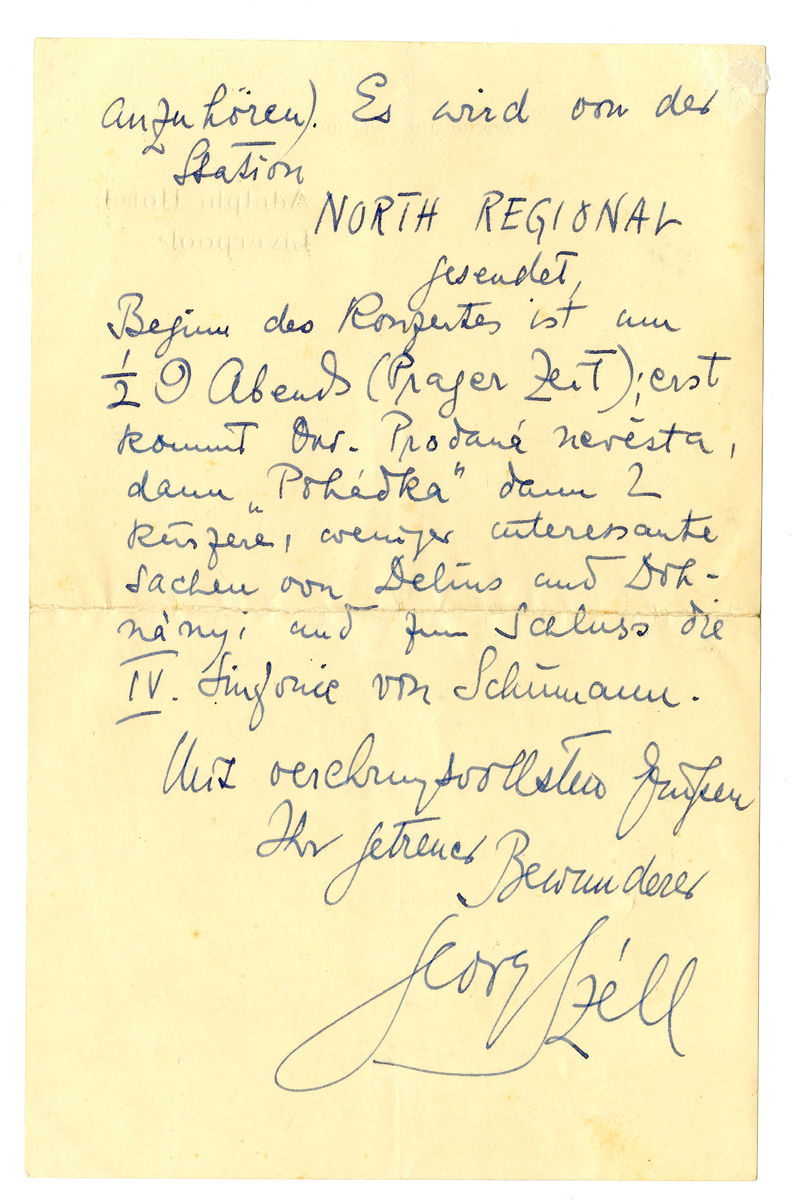 anzuhören). Es wird von der
Station
NORTH REGIONAL
gesendet,
Beginn des Konzertes ist um
½ 9 Abends (Prager Zeit); erst
kommt Ouv. Prodaná nevěsta,
dann „Pohádka“ dann 2
kürzere, weniger interessante
Sachen von Delius und Doh-
nányi und zum Schluss die
IV. Sinfonie von Schumann.
Mit verehrungsvollsten Grüßen
Ihr getreuer Bewunderer
Georg Széll
Adelphi Hotel
Liverpool